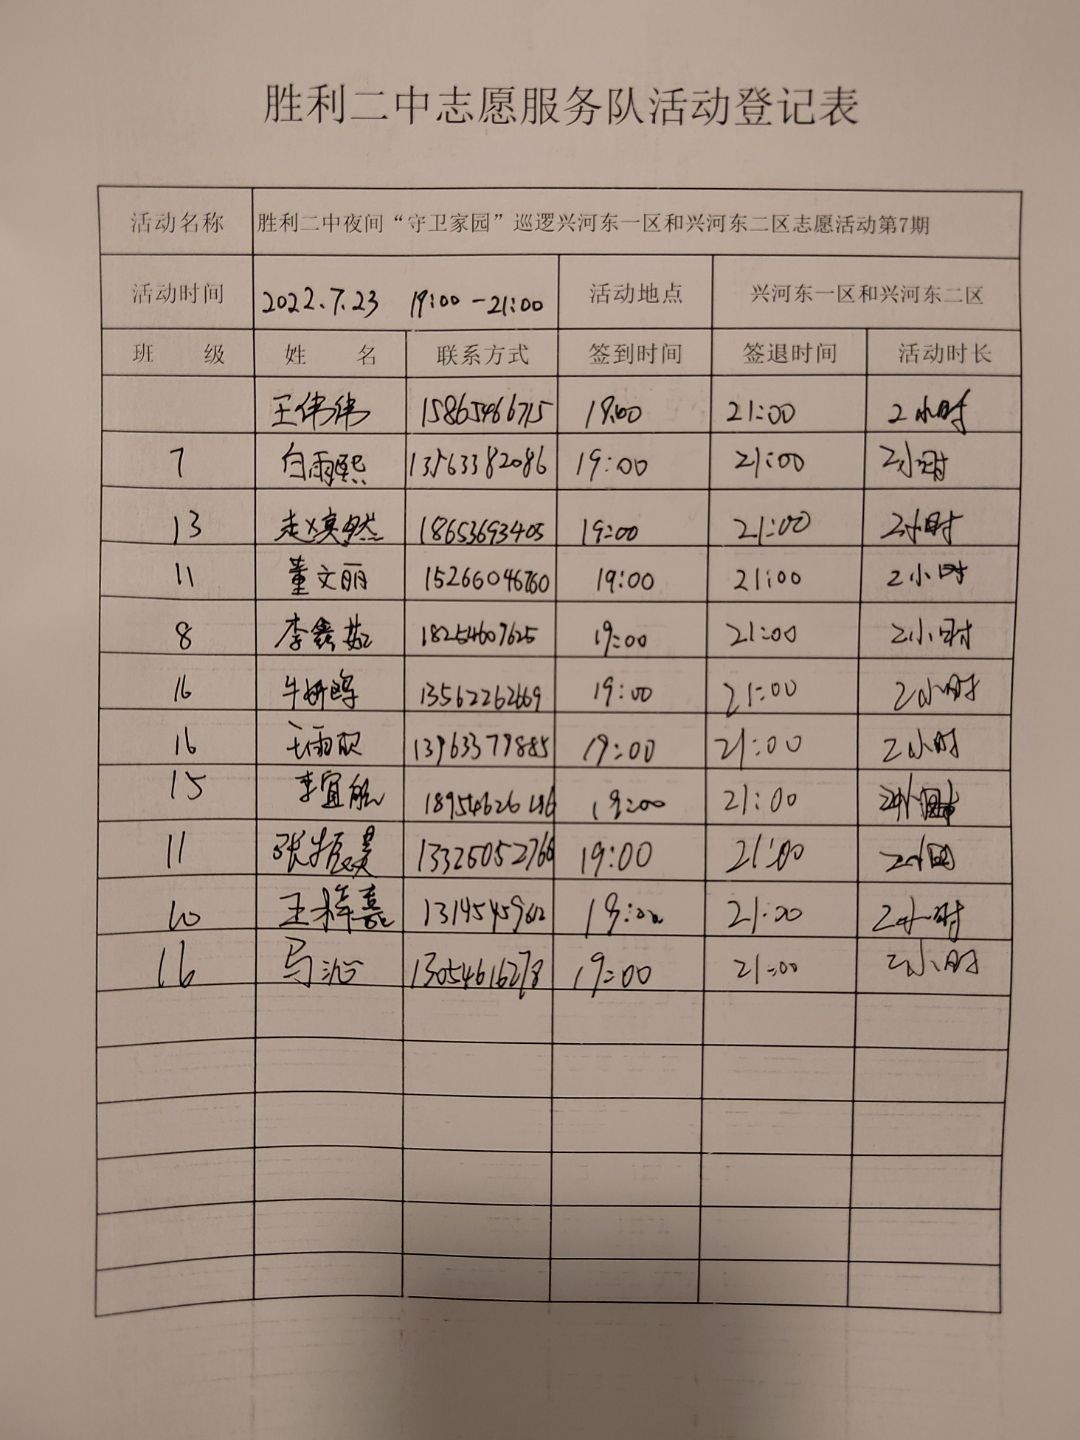 胜利二中志愿服务队活动登记表
活动名称 胜利二中夜间“守卫家园”巡逻兴河东一区和兴河东二区志愿活动第7期
活动时间 2022.7.23 19:00-21:00 活动地点 兴河东一区和兴河东二区
班 级 姓 名 联系方式 签到时间 签退时间 活动时长
王伟伟 15865466715 19:00 21:00 2小时
7 白雨熙 13563382086 19:00 21:00 2小时
13 18653693405 19:00 21:00 2小时
11 董文丽 15266046760 19:00 21:00 2小时
8 李鑫茹 18254607625 19:00 21:00 2小时
16 13562262669 19:00 21:00 2小时
16 13963379885 19:00 21:00 2小时
15 李宜航 19:00 21:00
11 张振昊 13325052766 19:00 21:00
10 王梓嘉 19:00 21:00 2小时
16 马沁 13054616278 19:00 21:00 2小时